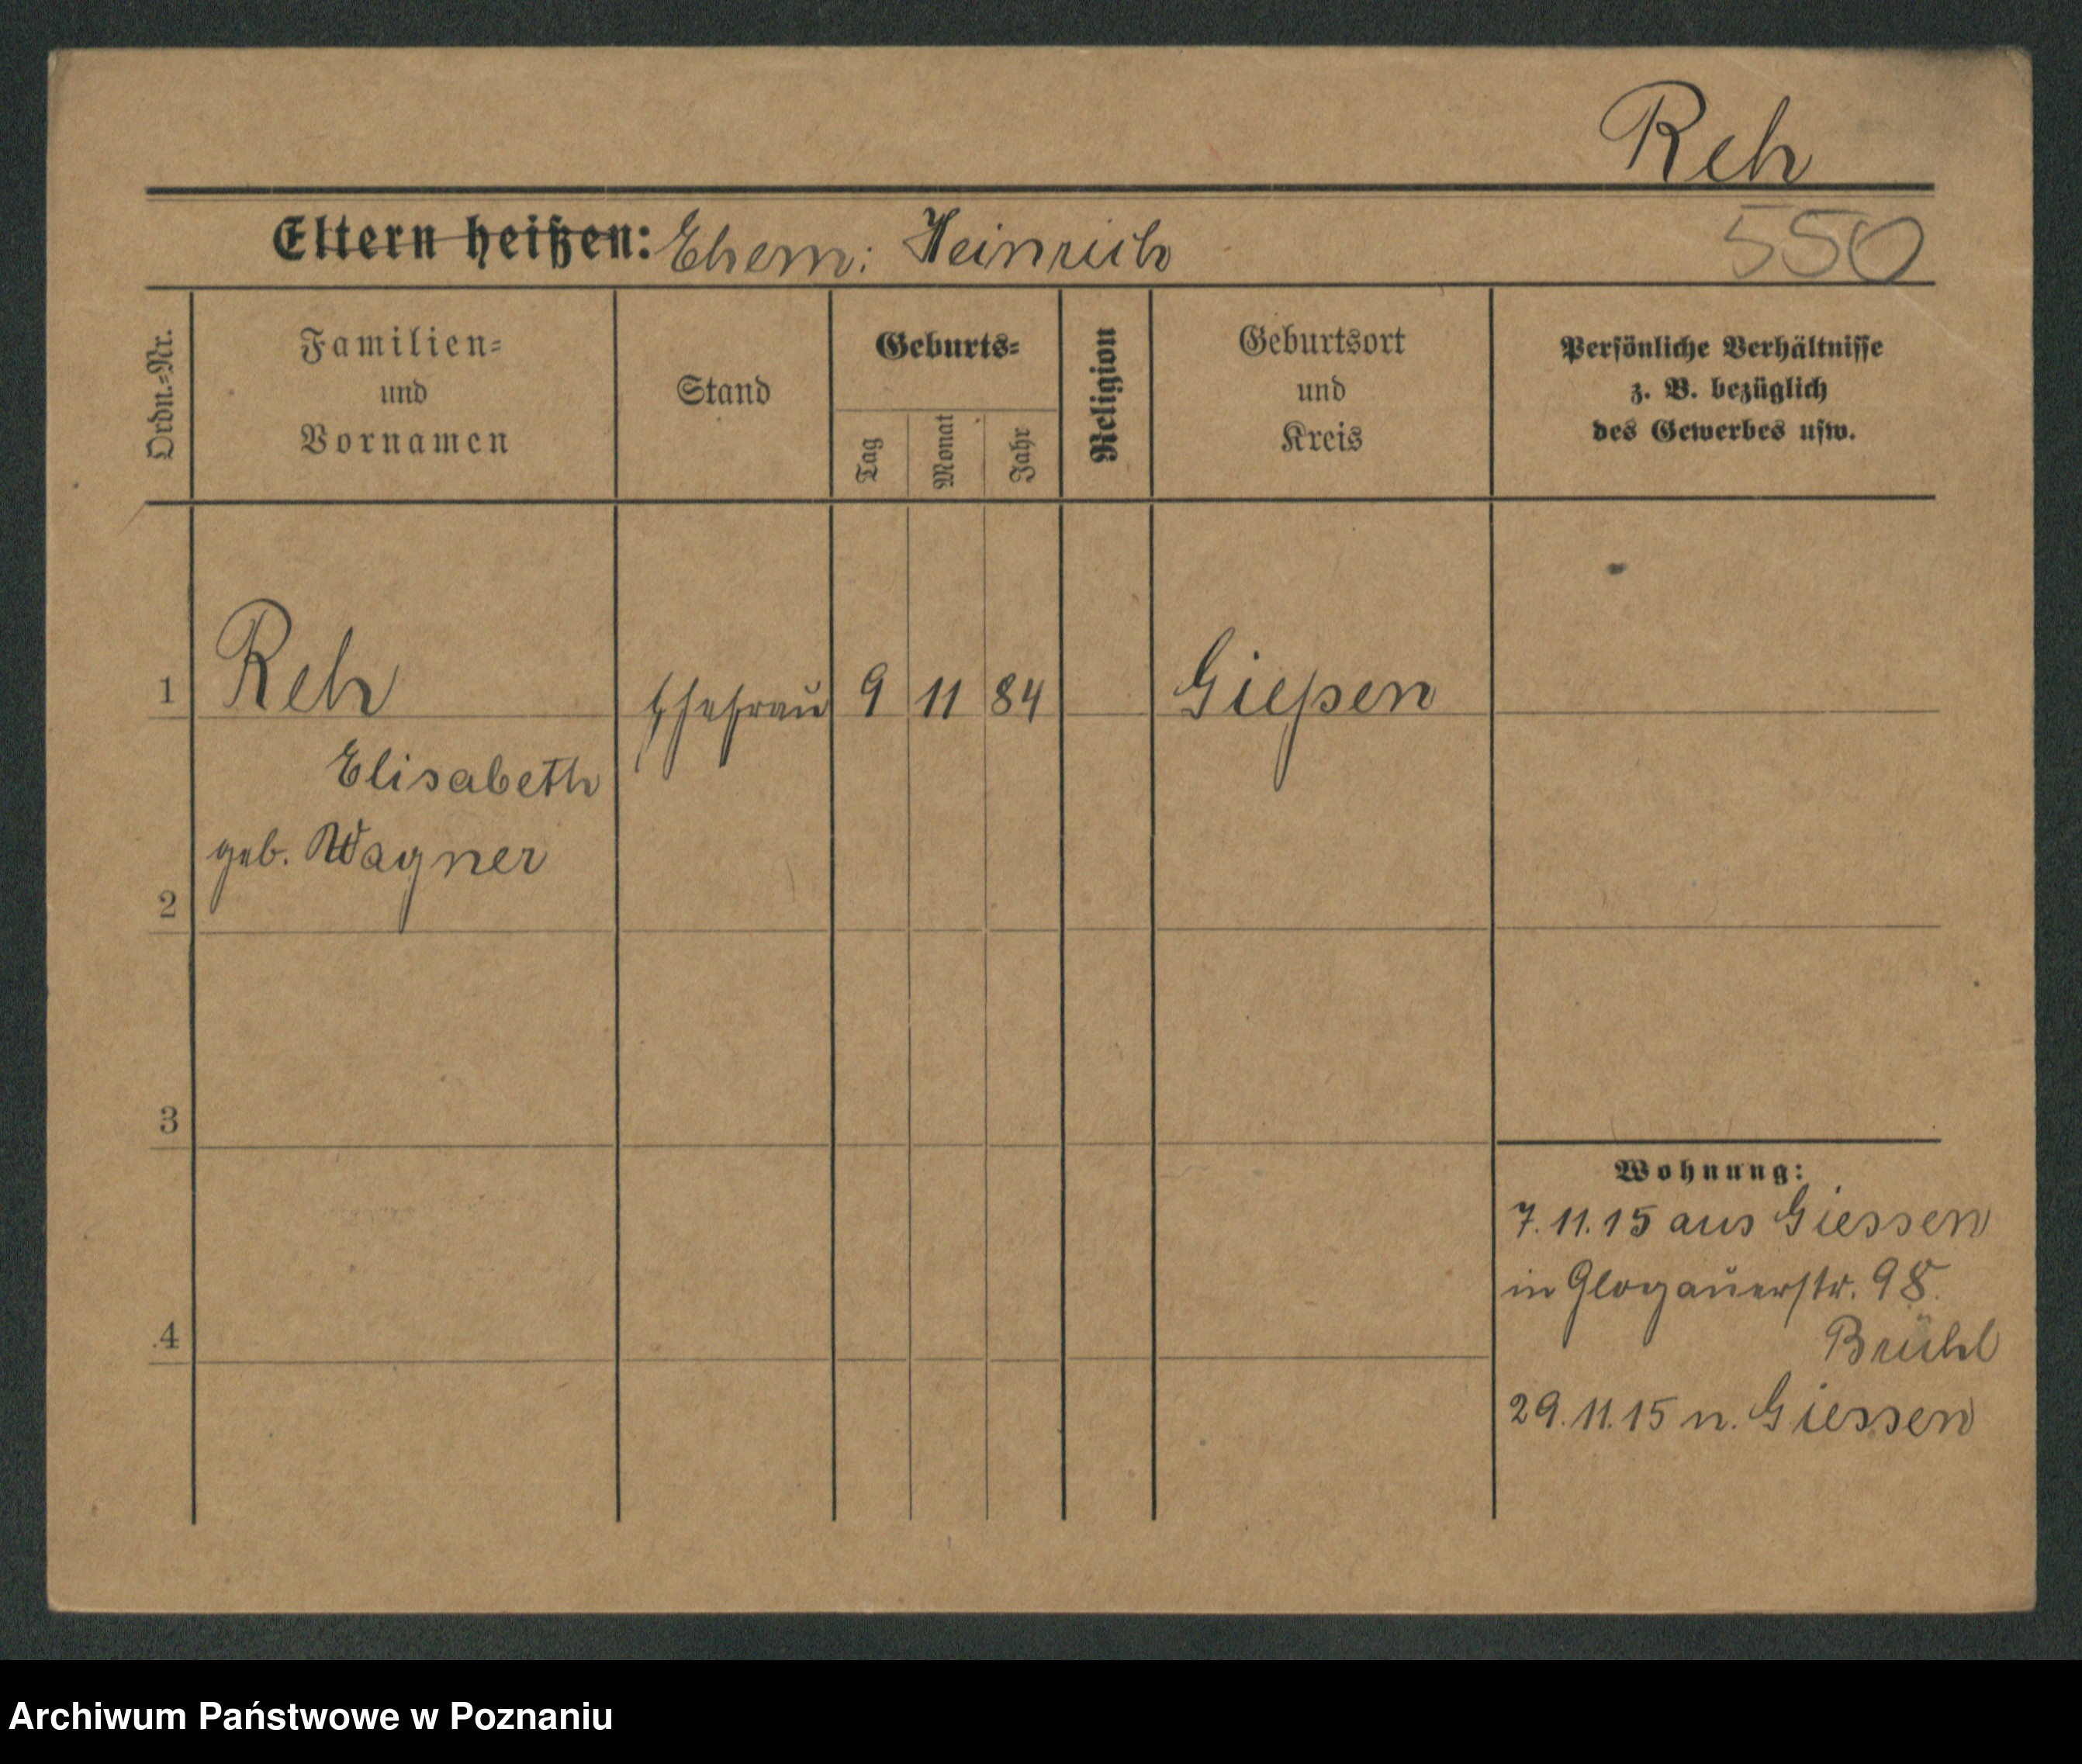 Reh
Eltern heißen: Ehem: Heinrich
550
Ordn.=Nr.
Familien=
und
Vornamen
Stand
Geburts=
Tag
Monat
Jahr
Religion
Geburtsort
und
Kreis
Persönliche Verhältnisse
z. B. bezüglich
des Gewerbes usw.
1 Reh Ehefrau 9 11 84 Gießen
Elisabeth
geb. Wagner
2
3
Wohnung:
7.11.15 aus Giessen
in Glogauerstr. 98.
Brühl
4
29.11.15 n. Giessen
Archiwum Państwowe w Poznaniu